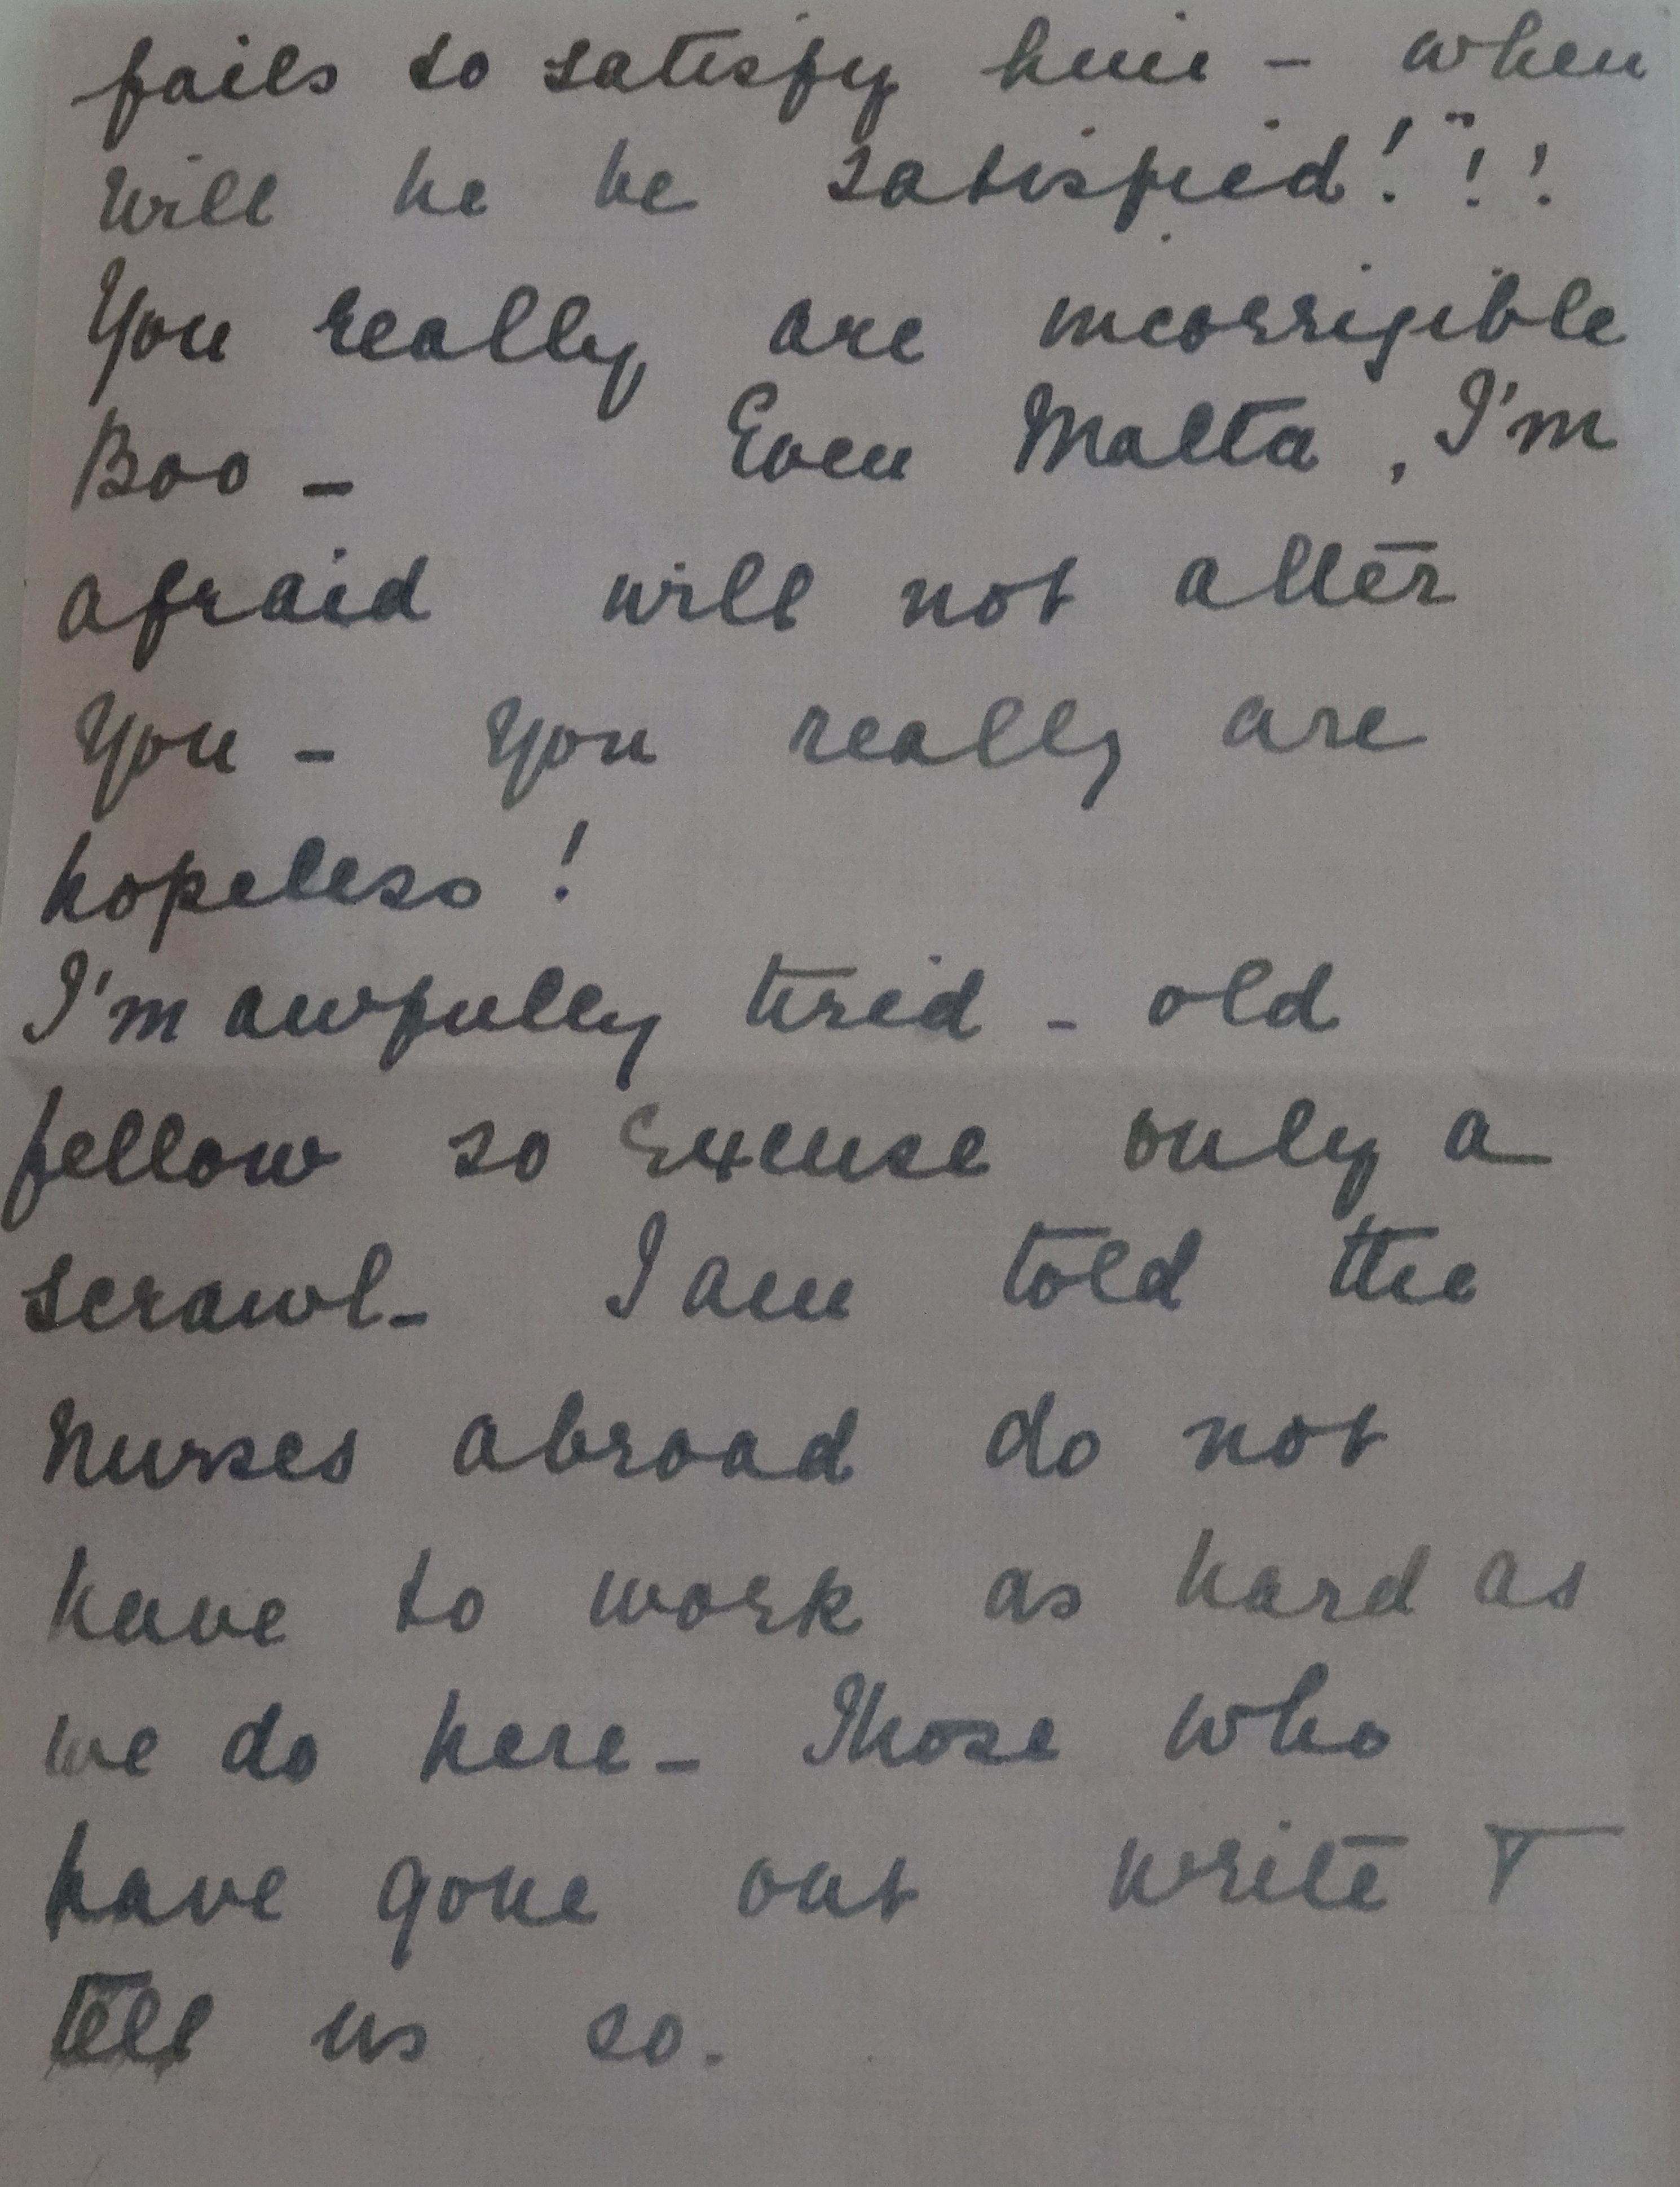 fails to satisfy him - when
will he be satisfied!"!!
You really are incorrigible
Boo - Even Malta, I'm
afraid will not alter
You - You really are
hopeless!
I'm awfully tired - old
fellow so Excuse only a
scrawl - I am told the
Nurses abroad do not
have to work as hard as
we do here - Those who
have gone out write &
tell us so.